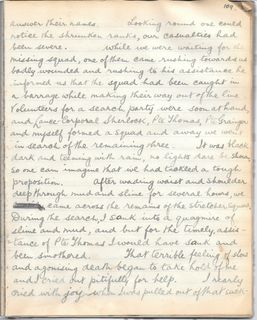 109
answer their names. Looking round one could
notice the shrunken ranks, our casualties had
been severe. While we were waiting for the
missing squad, one of them came rushing towards us
badly wounded and rushing to his assistance he
informed us that the squad had been caught in
a barrage while making their way out of the line
Volunteers for a search party were soon at hand,
and Lance Corporal Sherlock, Pte Thomas, Pte Grainger
and myself formed a squad and away we went
in search of the remaining three. It was black
dark and teeming with rain, no lights dare be shown
so one can imagine that we had tackled a tough
proposition. After wading waist and shoulder
deep through mud and slime for several hours, we
came across the remains of the stretcher squad.
During the search, I sank into a quagmire of
slime and mud, and but for the timely, assis-
tance of Pte Thomas I would have sank and
been smothered. That terrible feeling of slow
and agonising death began to take hold of me
and I cried out pitifully for help. I nearly
cried with joy when I was pulled out of that